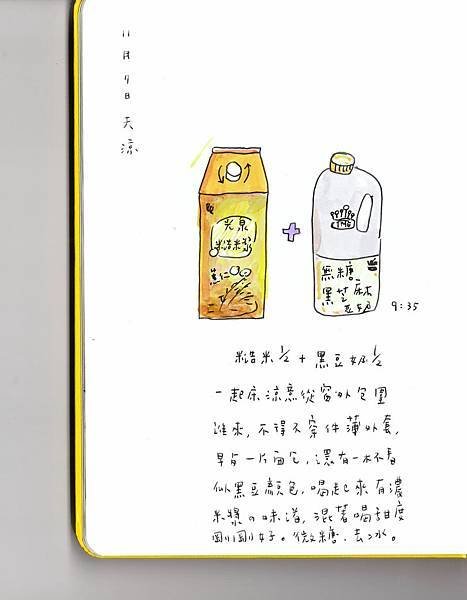 11月9日 天涼
光泉
糙米漿
薏仁
無糖
黑芝麻
豆奶
9:35
糙米½ + 黑豆奶½
一起床涼意從窗外包圍
進來，不得不穿件薄外套，
早晨一片面包，還有一杯看
似黑豆顏色，喝起來有濃
米漿の味道，混著喝甜度
剛剛好。微糖．去冰。